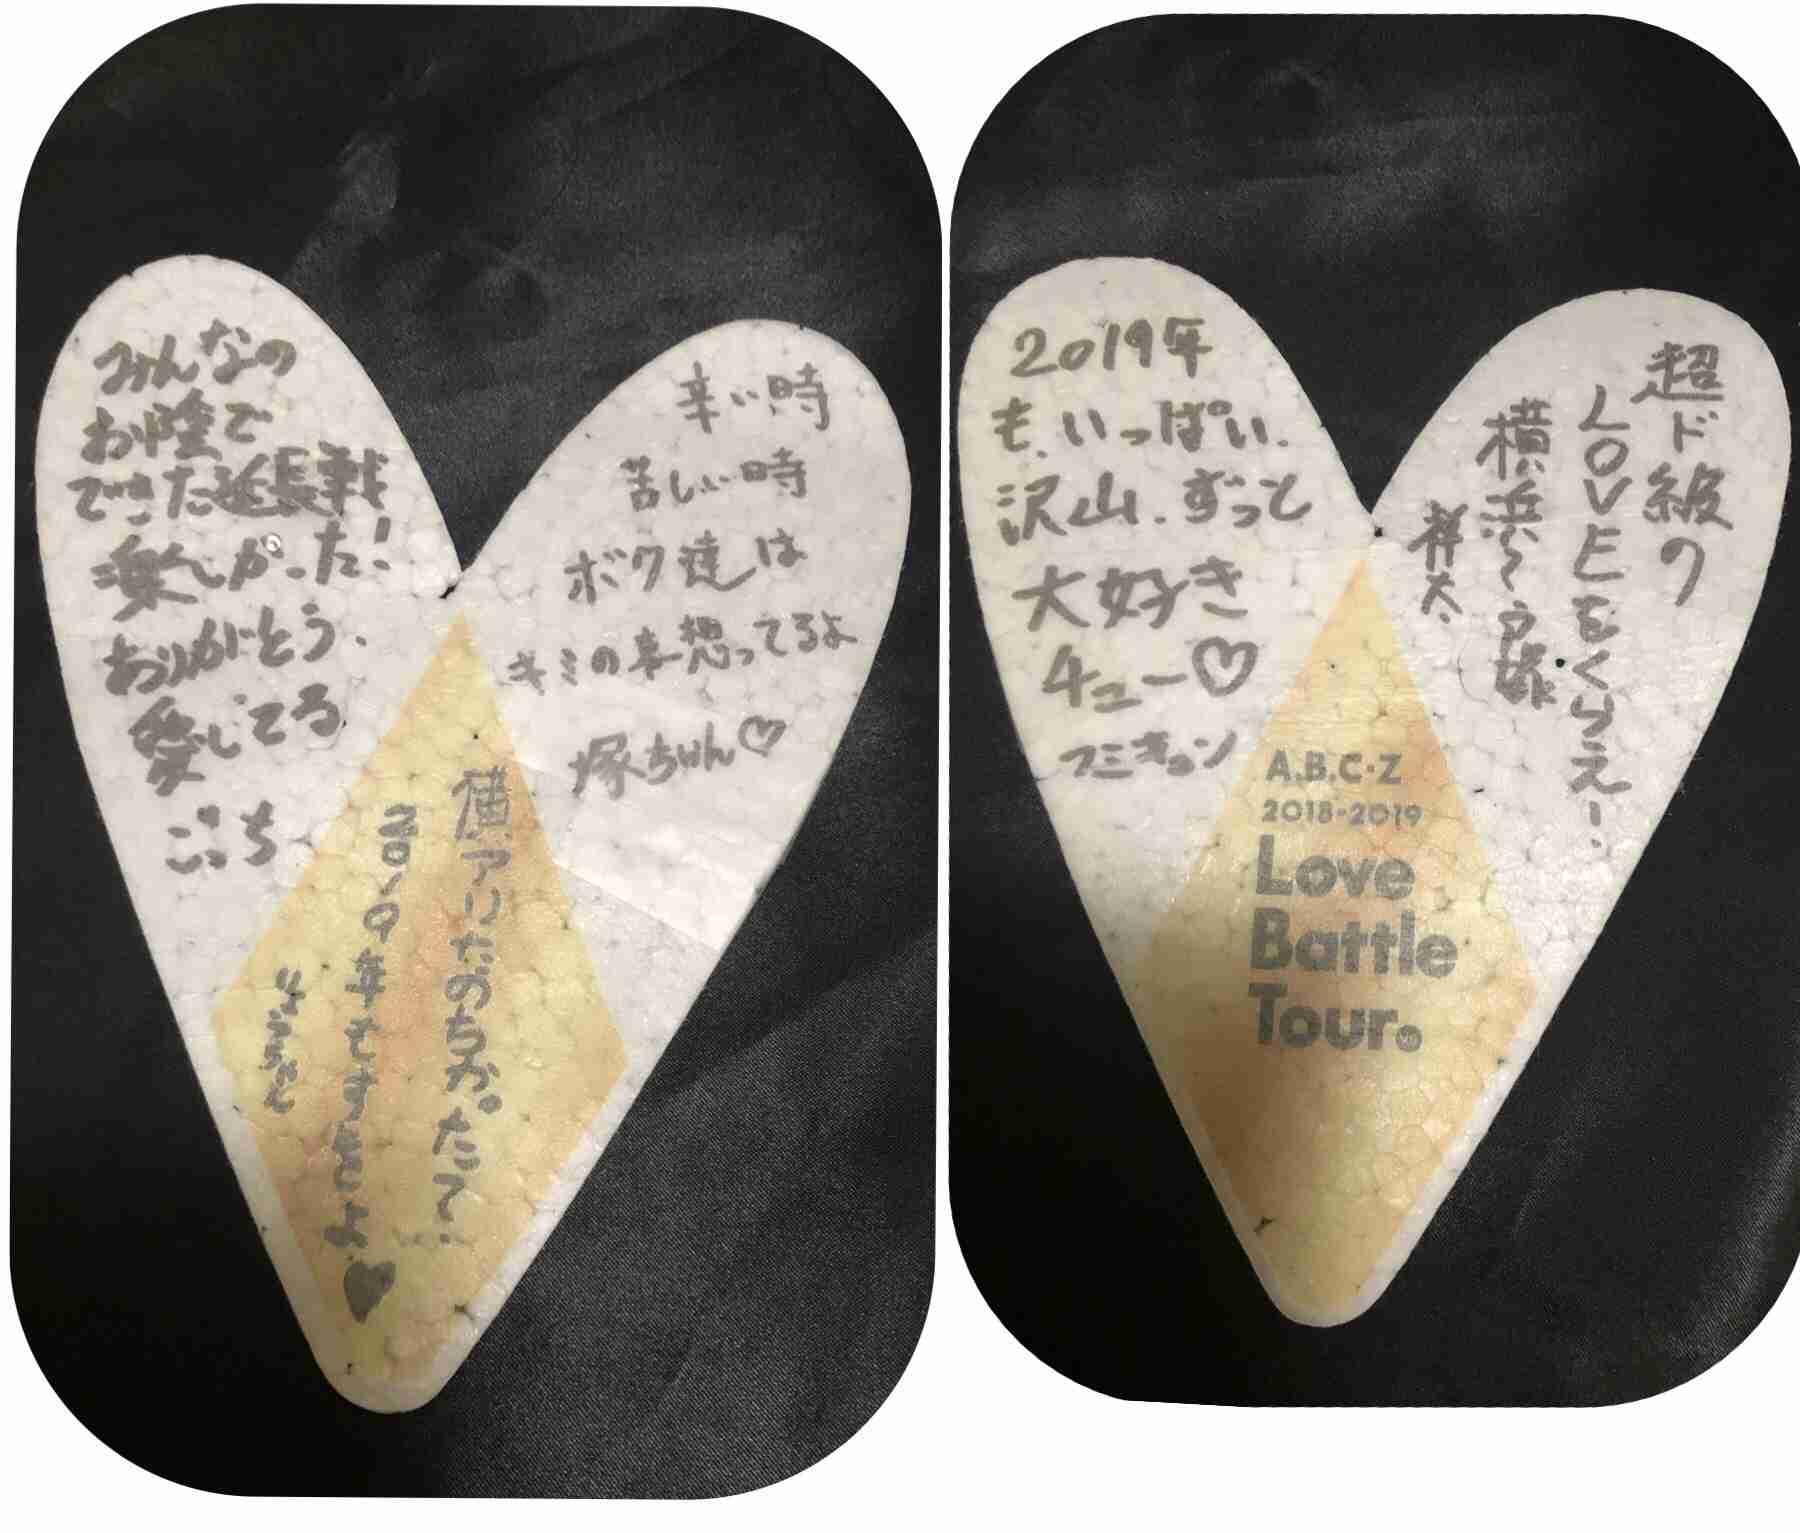 みんなの
お陰で
できた延長戦
楽しかった!
ありがとう.
愛してる
ごっち
辛い時
苦しい時
ボク達は
キミの事想ってるよ
塚ちゃん♡
横アリたのちかったて
の年もすきだよ♥
2019年
も、いっぱい、
沢山、ずっと
大好き
チュー♡
フミキュン
超ド級の
LOVEをくらえー!
横浜〜
祥太
A.B.C-Z
2018-2019
Love
Battle
Tour.